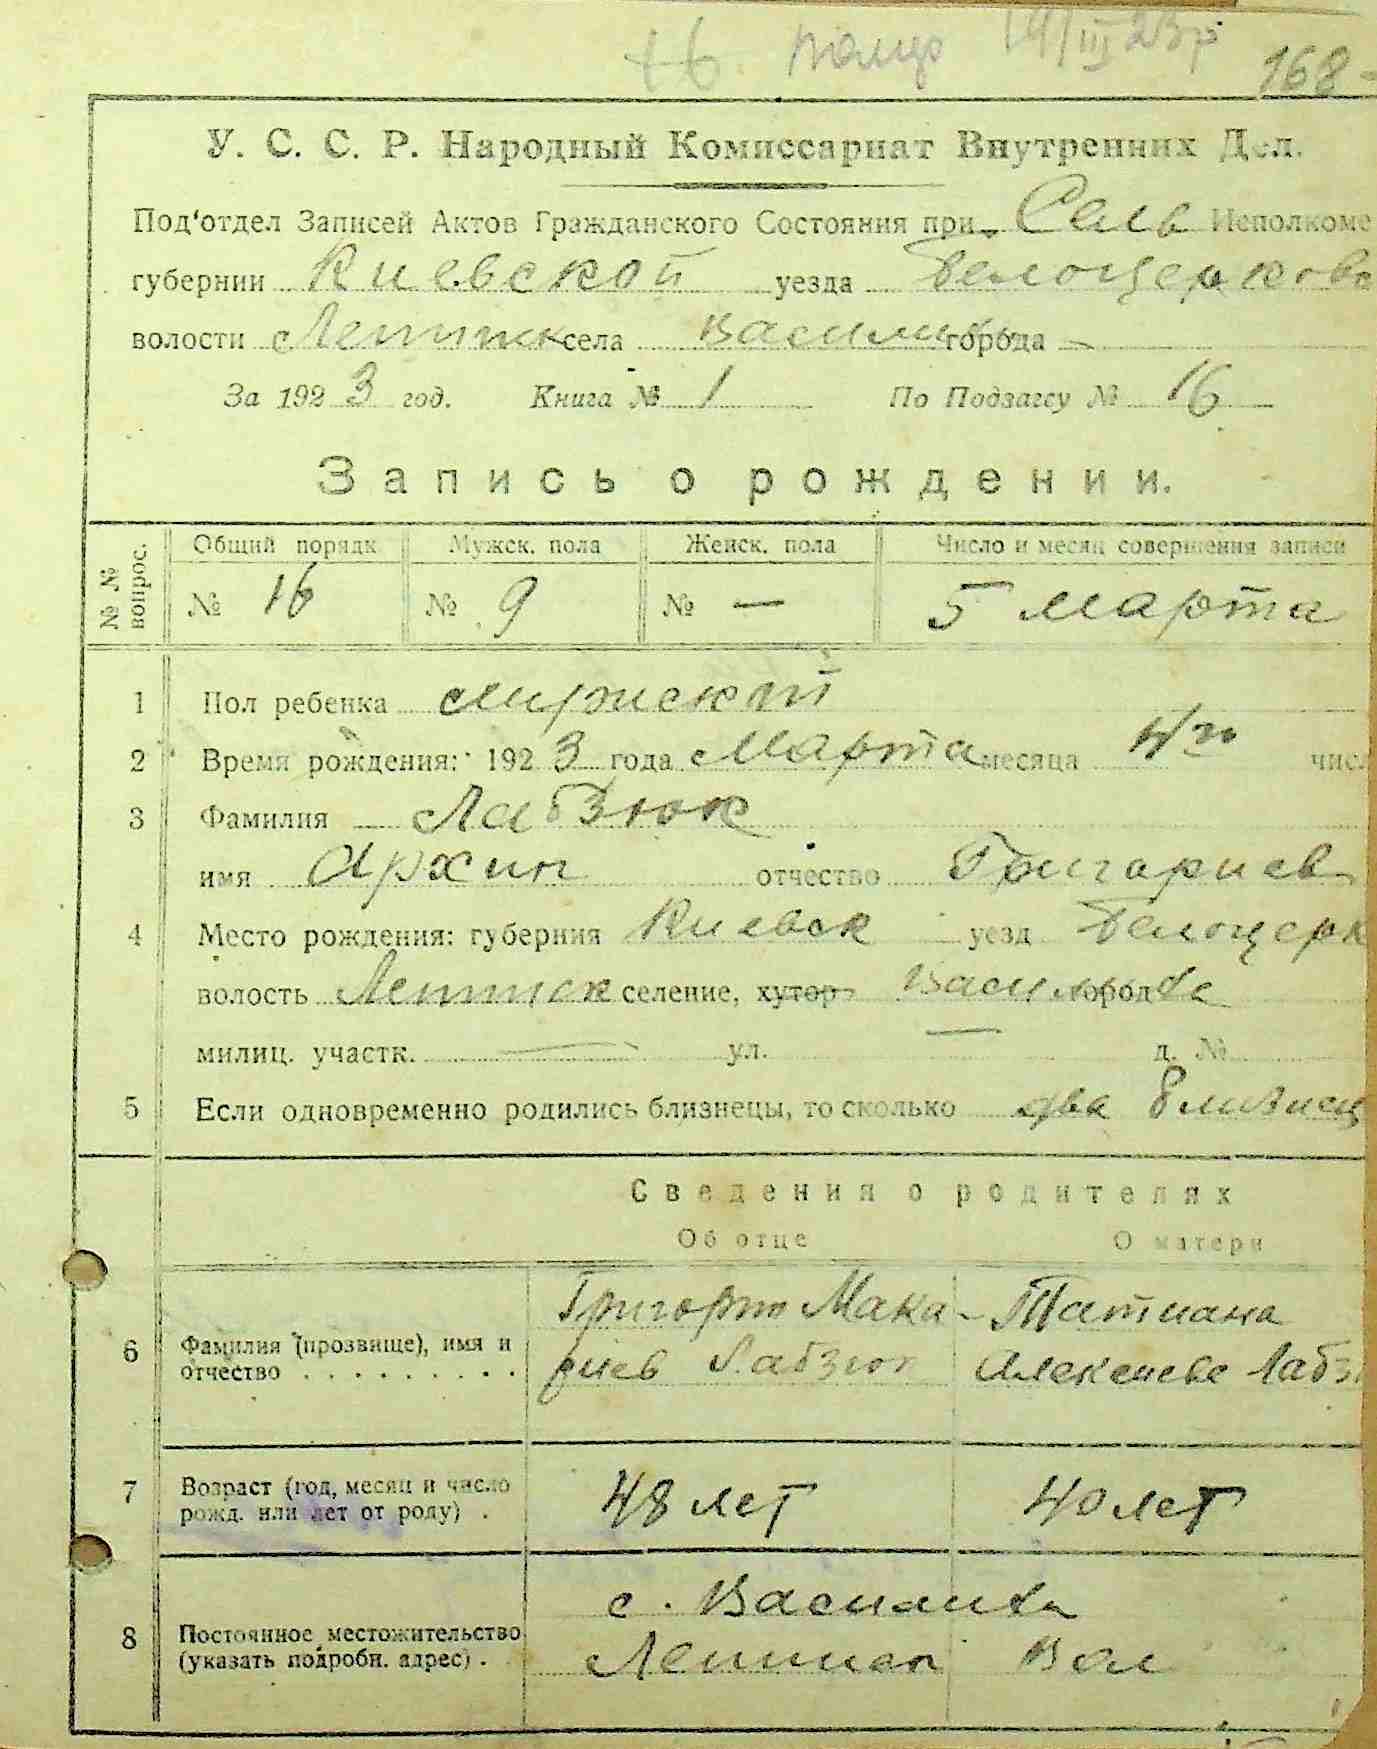 16 19/III 23 г
168
У. С. С. Р. Народный Комиссариат Внутренних Дел.
Под'отдел Записей Актов Гражданского Состояния при Сель Исполкоме
губернии Киевской уезда Белоцерковс
волости села города
За 1923 год. Книга № 1 По Подзагсу № 16
Запись о рождении.
№ № вопрос. Общий порядк Мужск. пола Женск. пола Число и месяц совершения записи
№ 16 № 9 № — 5 Марта
1 Пол ребенка мужской
2 Время рождения: 1923 года Марта месяца 4го числ
3 Фамилия Лабзюк
имя Архип отчество Григориев
4 Место рождения: губерния Киевск уезд Белоцерк
волость селение, хутор город
милиц. участк. — ул. — д. №
5 Если одновременно родились близнецы, то сколько два близнец
Сведения о родителях
Об отце О матери
6 Фамилия (прозвище), имя и Григорий Мака- Татиана
отчество . . . . . . . . . риев Лабзюк Алексеева Лабз
7 Возраст (год, месяц и число
рожд. или лет от роду) . 48 лет 40 лет
с.
8 Постоянное местожительство
(указать подробн. адрес) . Вол